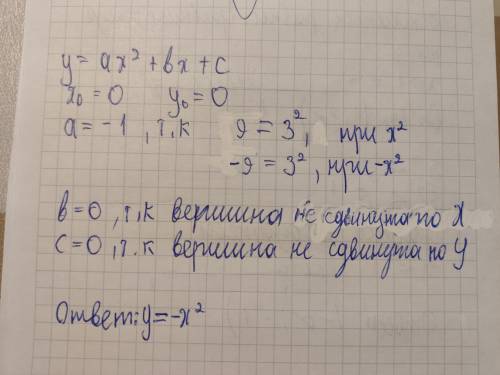 y = ax² + bx + c
x₀ = 0 y₀ = 0
a = -1 , т.к 9 = 3², при x²
-9 = 3², при -x²
b = 0 , т.к вершина не сдвинута по X
c = 0 , т.к вершина не сдвинута по y
Ответ: y = -x²